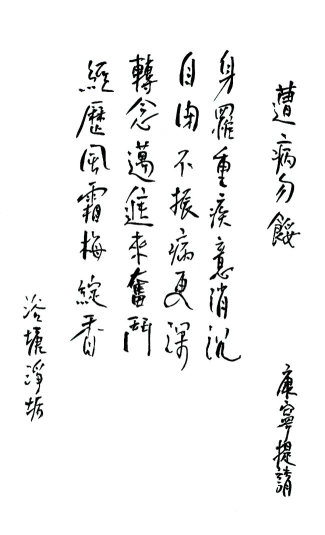 遭病勿餒
康寧提請
身罹重疾意消沉
自困不振病更深
轉念邁進來奮鬥
經歷風霜梅綻香
浴塘淨垢